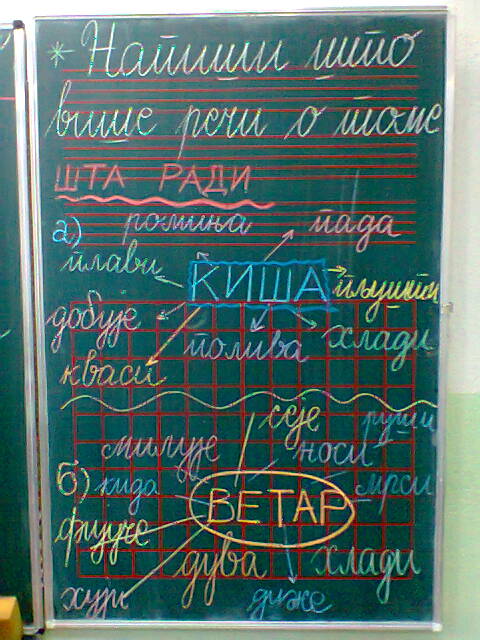 * Напиши што
више речи о томе
ШТА РАДИ
а) ромиња пада
плави КИША пљушти
добује полива хлади
кваси
сеје руши
милује носи
б) кида ВЕТАР мрси
фијуче дува хлади
хучи диже